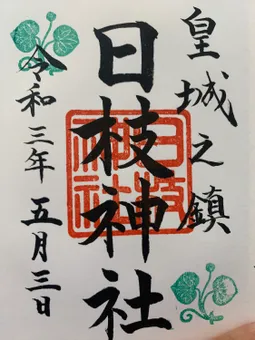 皇城之鎮
日枝神社
日枝神社
令和三年五月三日